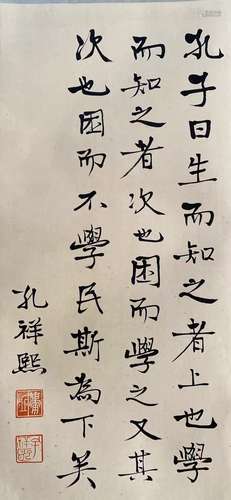 孔子曰生而知之者上也學
而知之者次也困而學之又其
次也困而不學民斯為下矣
孔祥熙